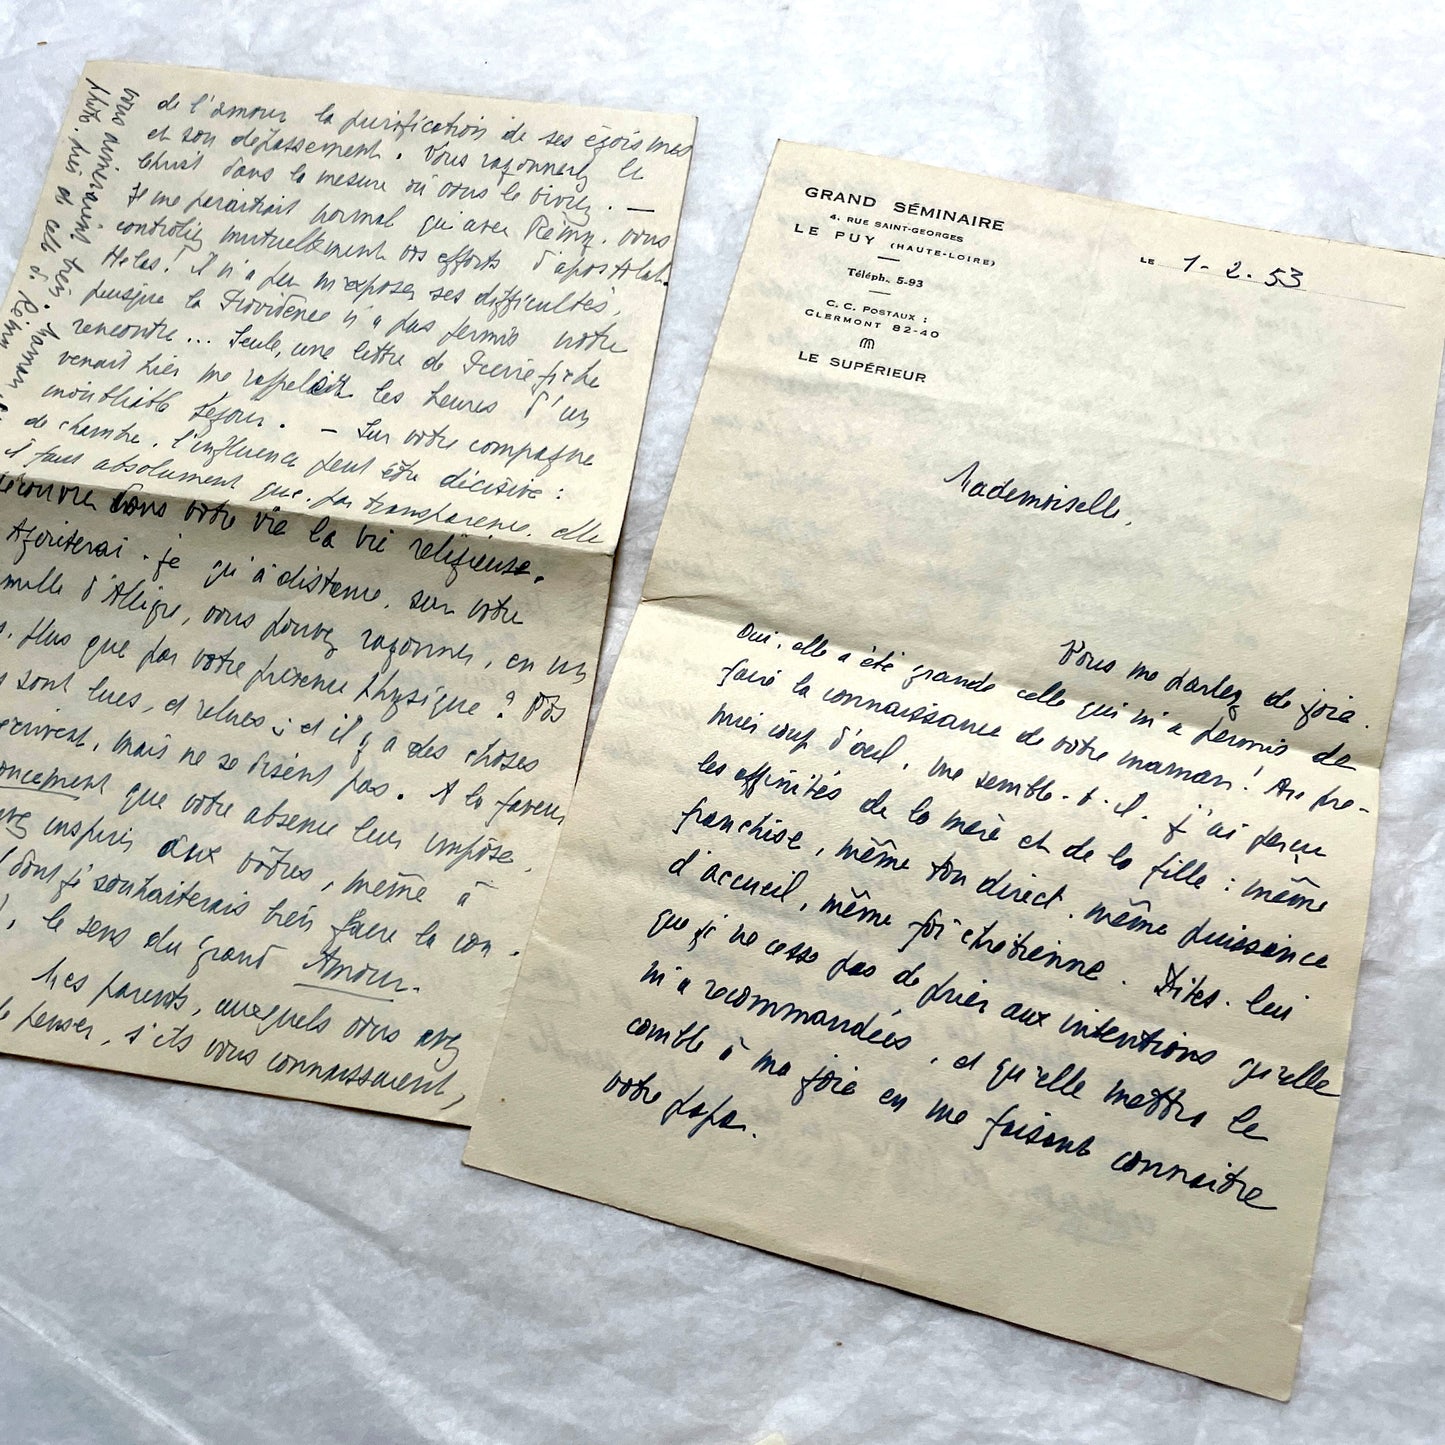 de l'amour la purification de ses égoismes
et son dépassement. Vous rayonnerez le
Christ dans la mesure où vous le vivrez. —
Il me paraitrait normal qu'avec Rémy, vous
contrôliez mutuellement vos efforts d'apostolat.
Helas! Il n'a pu m'exposer ses difficultés,
puisque la Providence n'a pas permis notre
rencontre... Seule, une lettre de Pierrefiche
venait hier me rappeler les heures d'un
inoubliable séjour. — Sur votre compagne
de chambre, l'influence peut être décisive:
il faut absolument que, par transparence, elle
découvre dans votre vie la vie religieuse.
Ajouterai-je qu'à distance, sur votre
d'Allègre, vous pouvez rayonner, en un
plus que par votre présence physique? Vos
sont lues, et relues; et il y a des choses
mais ne se disent pas. A la faveur
que votre absence leur impose,
inspirer aux vôtres, même à
dont je souhaiterais bien faire la con-
, le sens du grand Amour.
Mes parents, auxquels vous avez
penser, s'ils vous connaissaient,
vous aimeraient très. Maman,
GRAND SÉMINAIRE
4, RUE SAINT-GEORGES
LE PUY (HAUTE-LOIRE)
Téléph. 5-93
C. C. POSTAUX :
CLERMONT 82-40
LE SUPÉRIEUR
LE 1-2-53
Mademoiselle,
Vous me parlez de joie.
Oui, elle a été grande celle qui m'a permis de
faire la connaissance de votre maman! Au pre-
mier coup d'oeil, me semble-t-il, j'ai perçu
les affinités de la mère et de la fille: même
franchise, même ton direct, même puissance
d'accueil, même foi chrétienne. Dites-lui
que je ne cesse pas de prier aux intentions qu'elle
m'a recommandées, et qu'elle mettra le
comble à ma joie en me faisant connaitre
votre papa.